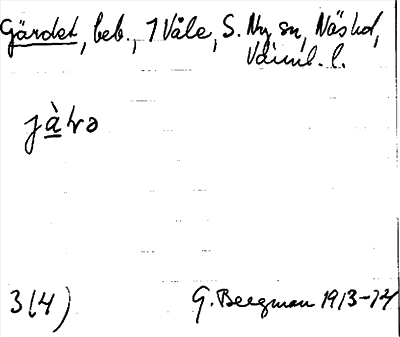 Gärdet, beb., 1 Våle, S. Ny sn, Näs hd,
Värml. l.
jàtɘ
3(4) G. Bergman 1913-14